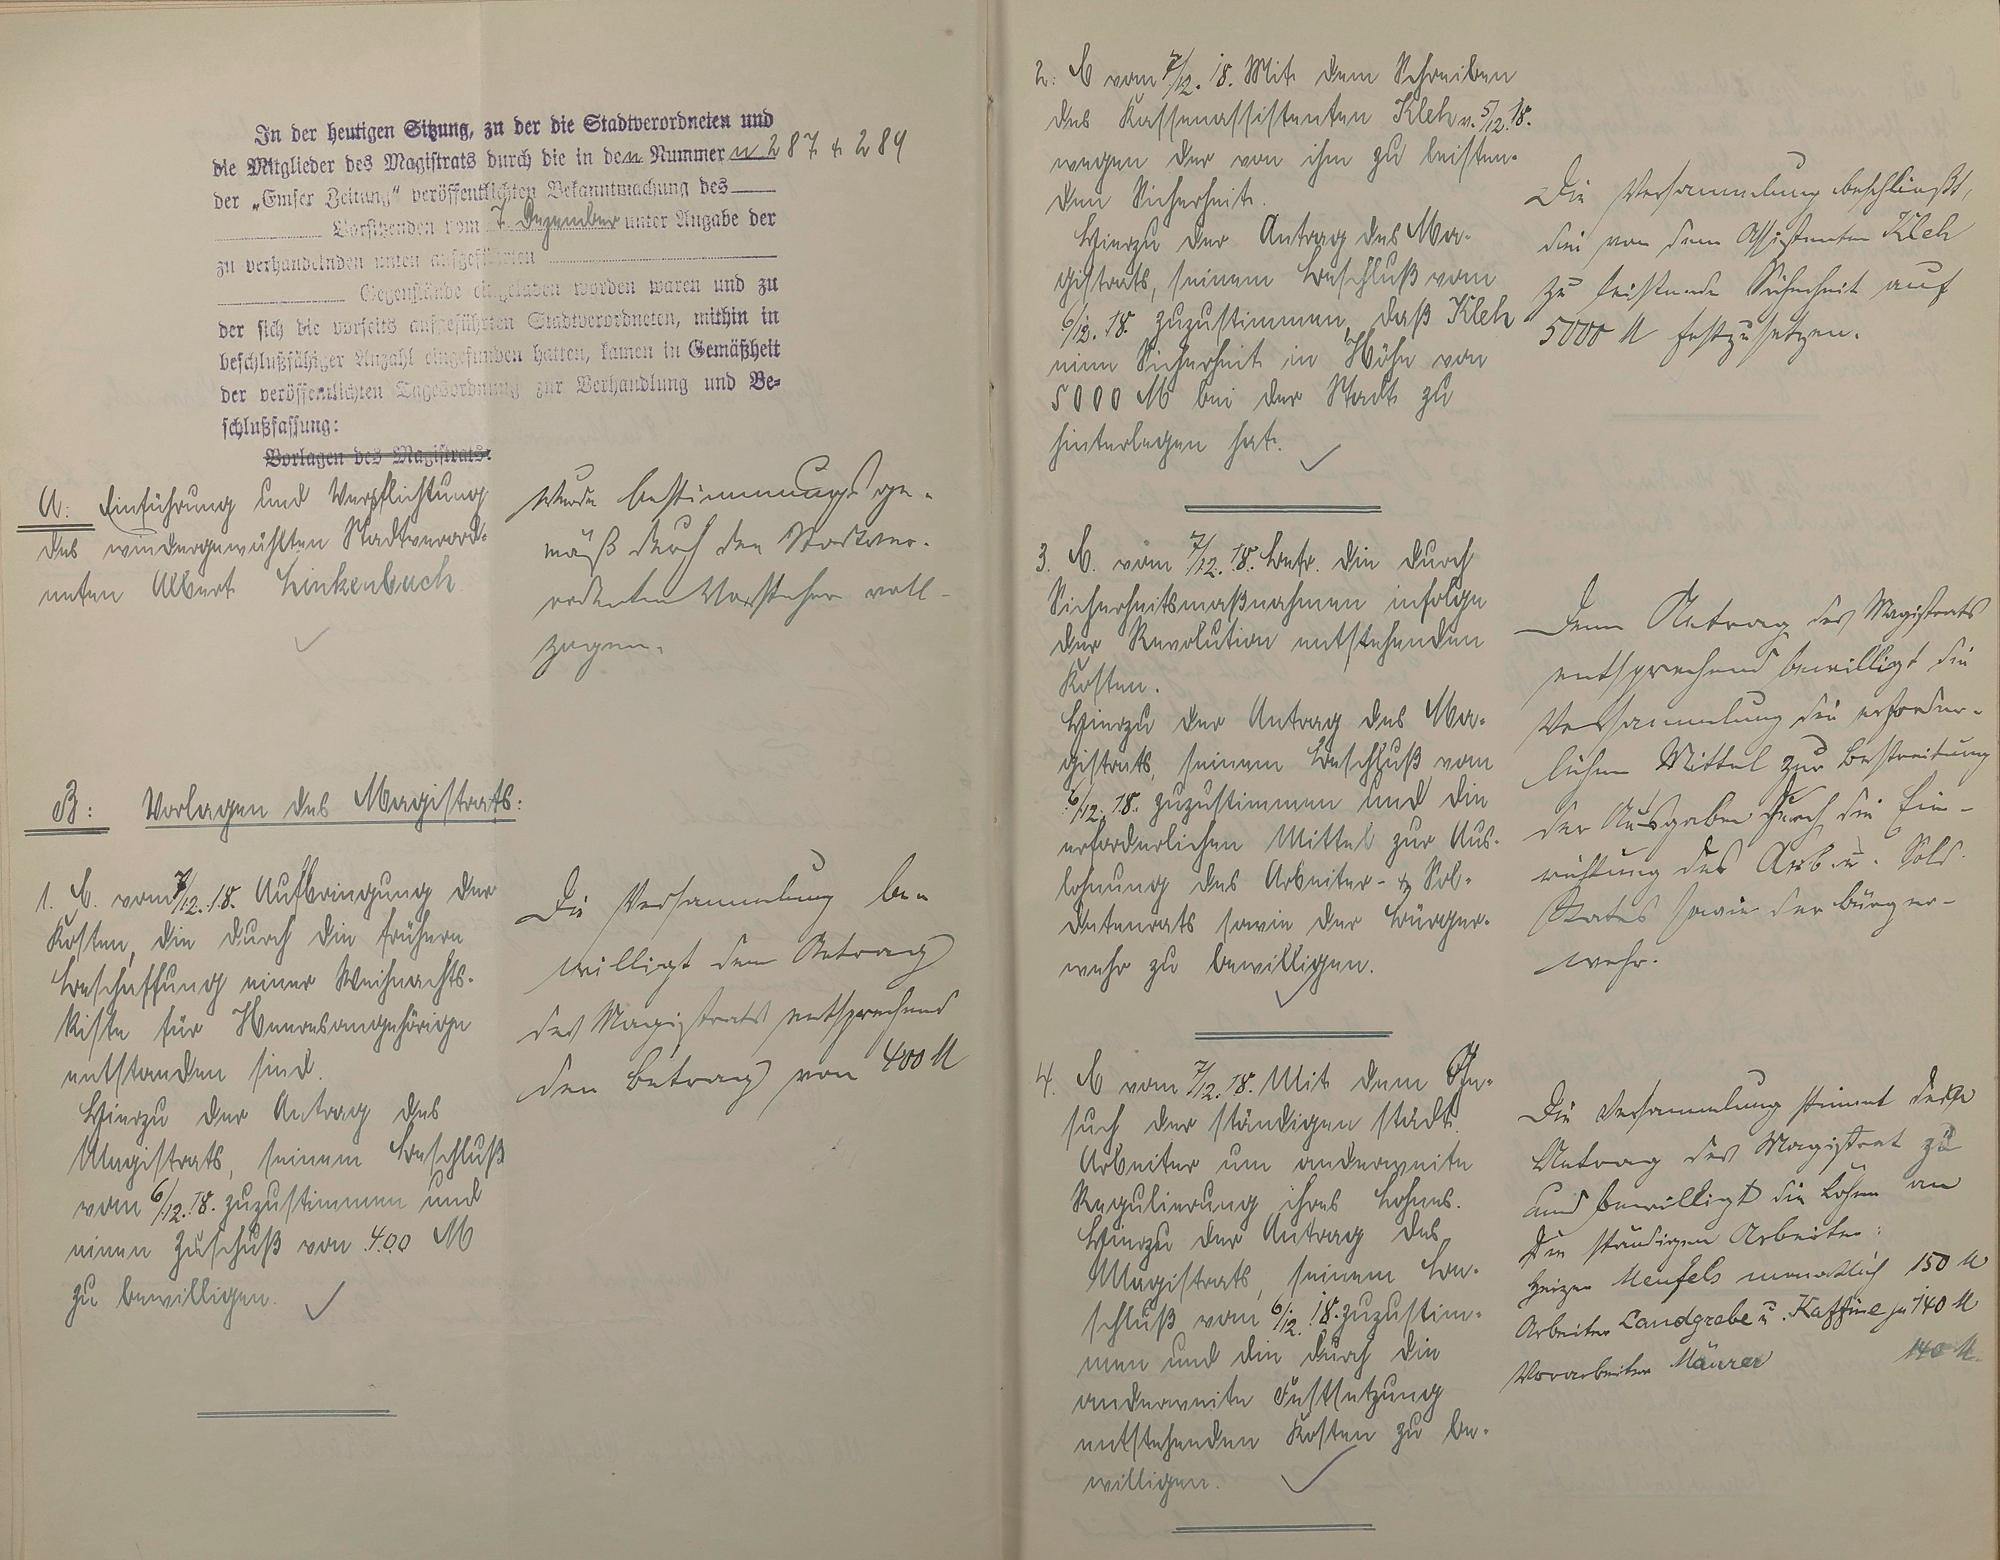 In der heutigen Sitzung, zu der die Stadtverordneten und
die Mitglieder des Magistrats durch die in den Nummern 287 & 289
der „Emser Zeitung“ veröffentlichten Bekanntmachung des
Vorsitzenden vom 7. Dezember unter Angabe der
zu verhandelnden unten aufgeführten
Gegenstände eingeladen worden waren und zu
der sich die vorseits aufgeführten Stadtverordneten, mithin in
beschlußfähiger Anzahl eingefunden hatten, kamen in Gemäßheit
der veröffentlichten Tagesordnung zur Verhandlung und Be-
schlußfassung:
Vorlagen des Magistrats:
A: Einführung und Verpflichtung
des wiedergewählten Stadtverord-
neten Albert Linkenbach
wurde bestimmungsge-
mäß durch den Stadtver-
ordneten Vorsteher voll-
zogen.
B: Vorlagen des Magistrats:
1. B. vom 7/12.18. Aufbringung der
Kosten, die durch die frühere
Beschaffung einer Weihnachts-
kiste für Heeresangehörige
entstanden sind.
Hierzu der Antrag des
Magistrats, seinem Beschluß
vom 6/12.18. zuzustimmen und
einen Zuschuß von 400 M
zu bewilligen.
Die Versammlung be-
willigt dem Antrag
des Magistrats entsprechend
den Betrag von 400 M
2. B vom 7/12.18. Mit dem Schreiben
des Kassenassistenten Kleh v. 5/12.18.
wegen der von ihm zu leisten-
den Sicherheit.
Hierzu der Antrag des Ma-
gistrats, seinem Beschluß vom
6/12.18. zuzustimmen, daß Kleh
eine Sicherheit in Höhe von
5000 M bei der Stadt zu
hinterlegen hat.
Die Versammlung beschließt,
die von dem Assistenten Kleh
zu leistende Sicherheit auf
5000 M festzusetzen.
3. B. vom 7/12.18. Betr. die durch
Sicherheitsmaßnahmen infolge
der Revolution entstehenden
Kosten.
Hierzu der Antrag des Ma-
gistrats, seinem Beschluß vom
6/12.18. zuzustimmen und die
erforderlichen Mittel zur Aus-
lohnung des Arbeiter- & Sol-
datenrats sowie der Bürger-
wehr zu bewilligen.
Dem Antrag des Magistrats
entsprechend bewilligt die
Versammlung die erforder-
lichen Mittel zur Bestreitung
der Ausgaben durch die Ein-
richtung des Arb. u. Sold.
Rates sowie der Bürger-
wehr.
4. B vom 7/12.18. Mit dem Ge-
such der ständigen städt.
Arbeiter um anderweite
Regulierung ihres Lohnes.
Hierzu der Antrag des
Magistrats, seinem Be-
schluß vom 6/12.18. zuzustim-
men und die durch die
anderweite Festsetzung
entstehenden Kosten zu be-
willigen.
Die Versammlung stimmt dem
Antrag des Magistrat zu
und bewilligt die Löhne an
die ständigen Arbeiter:
Heizer Meufels monatlich 150 M
Arbeiter Landgrebe u. Kaffine je 140 M
Vorarbeiter Mäurer 140 M.